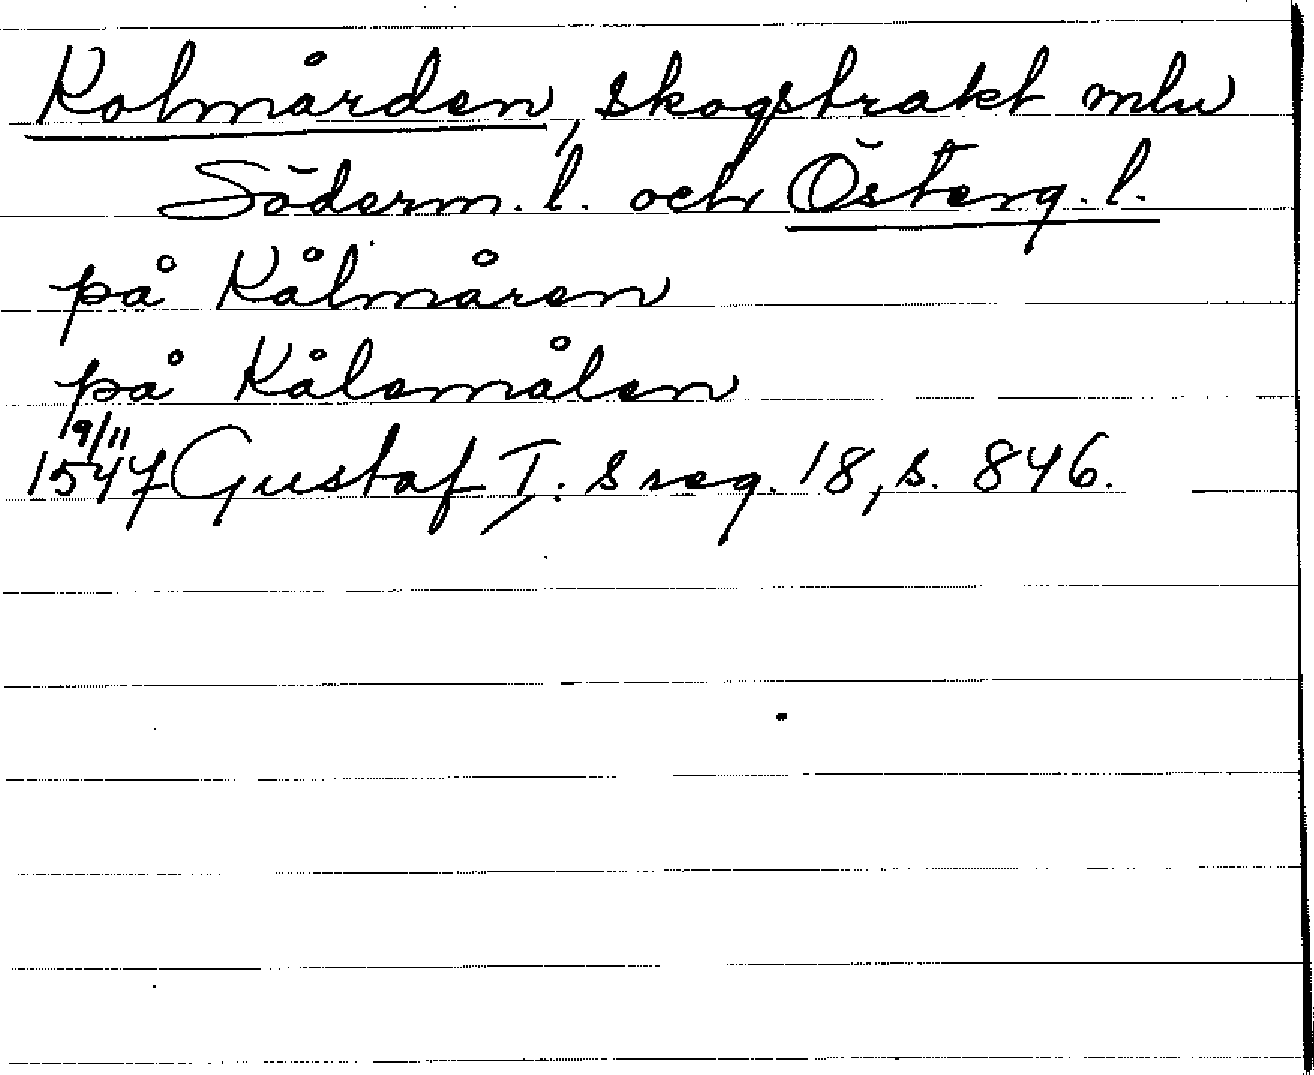 Kolmården, skogstrakt mlu
Söderm. l. och Österg. l.
på Kålmåren
på Kålemålen
19/11
1547 Gustaf I: s reg. 18, s. 846.